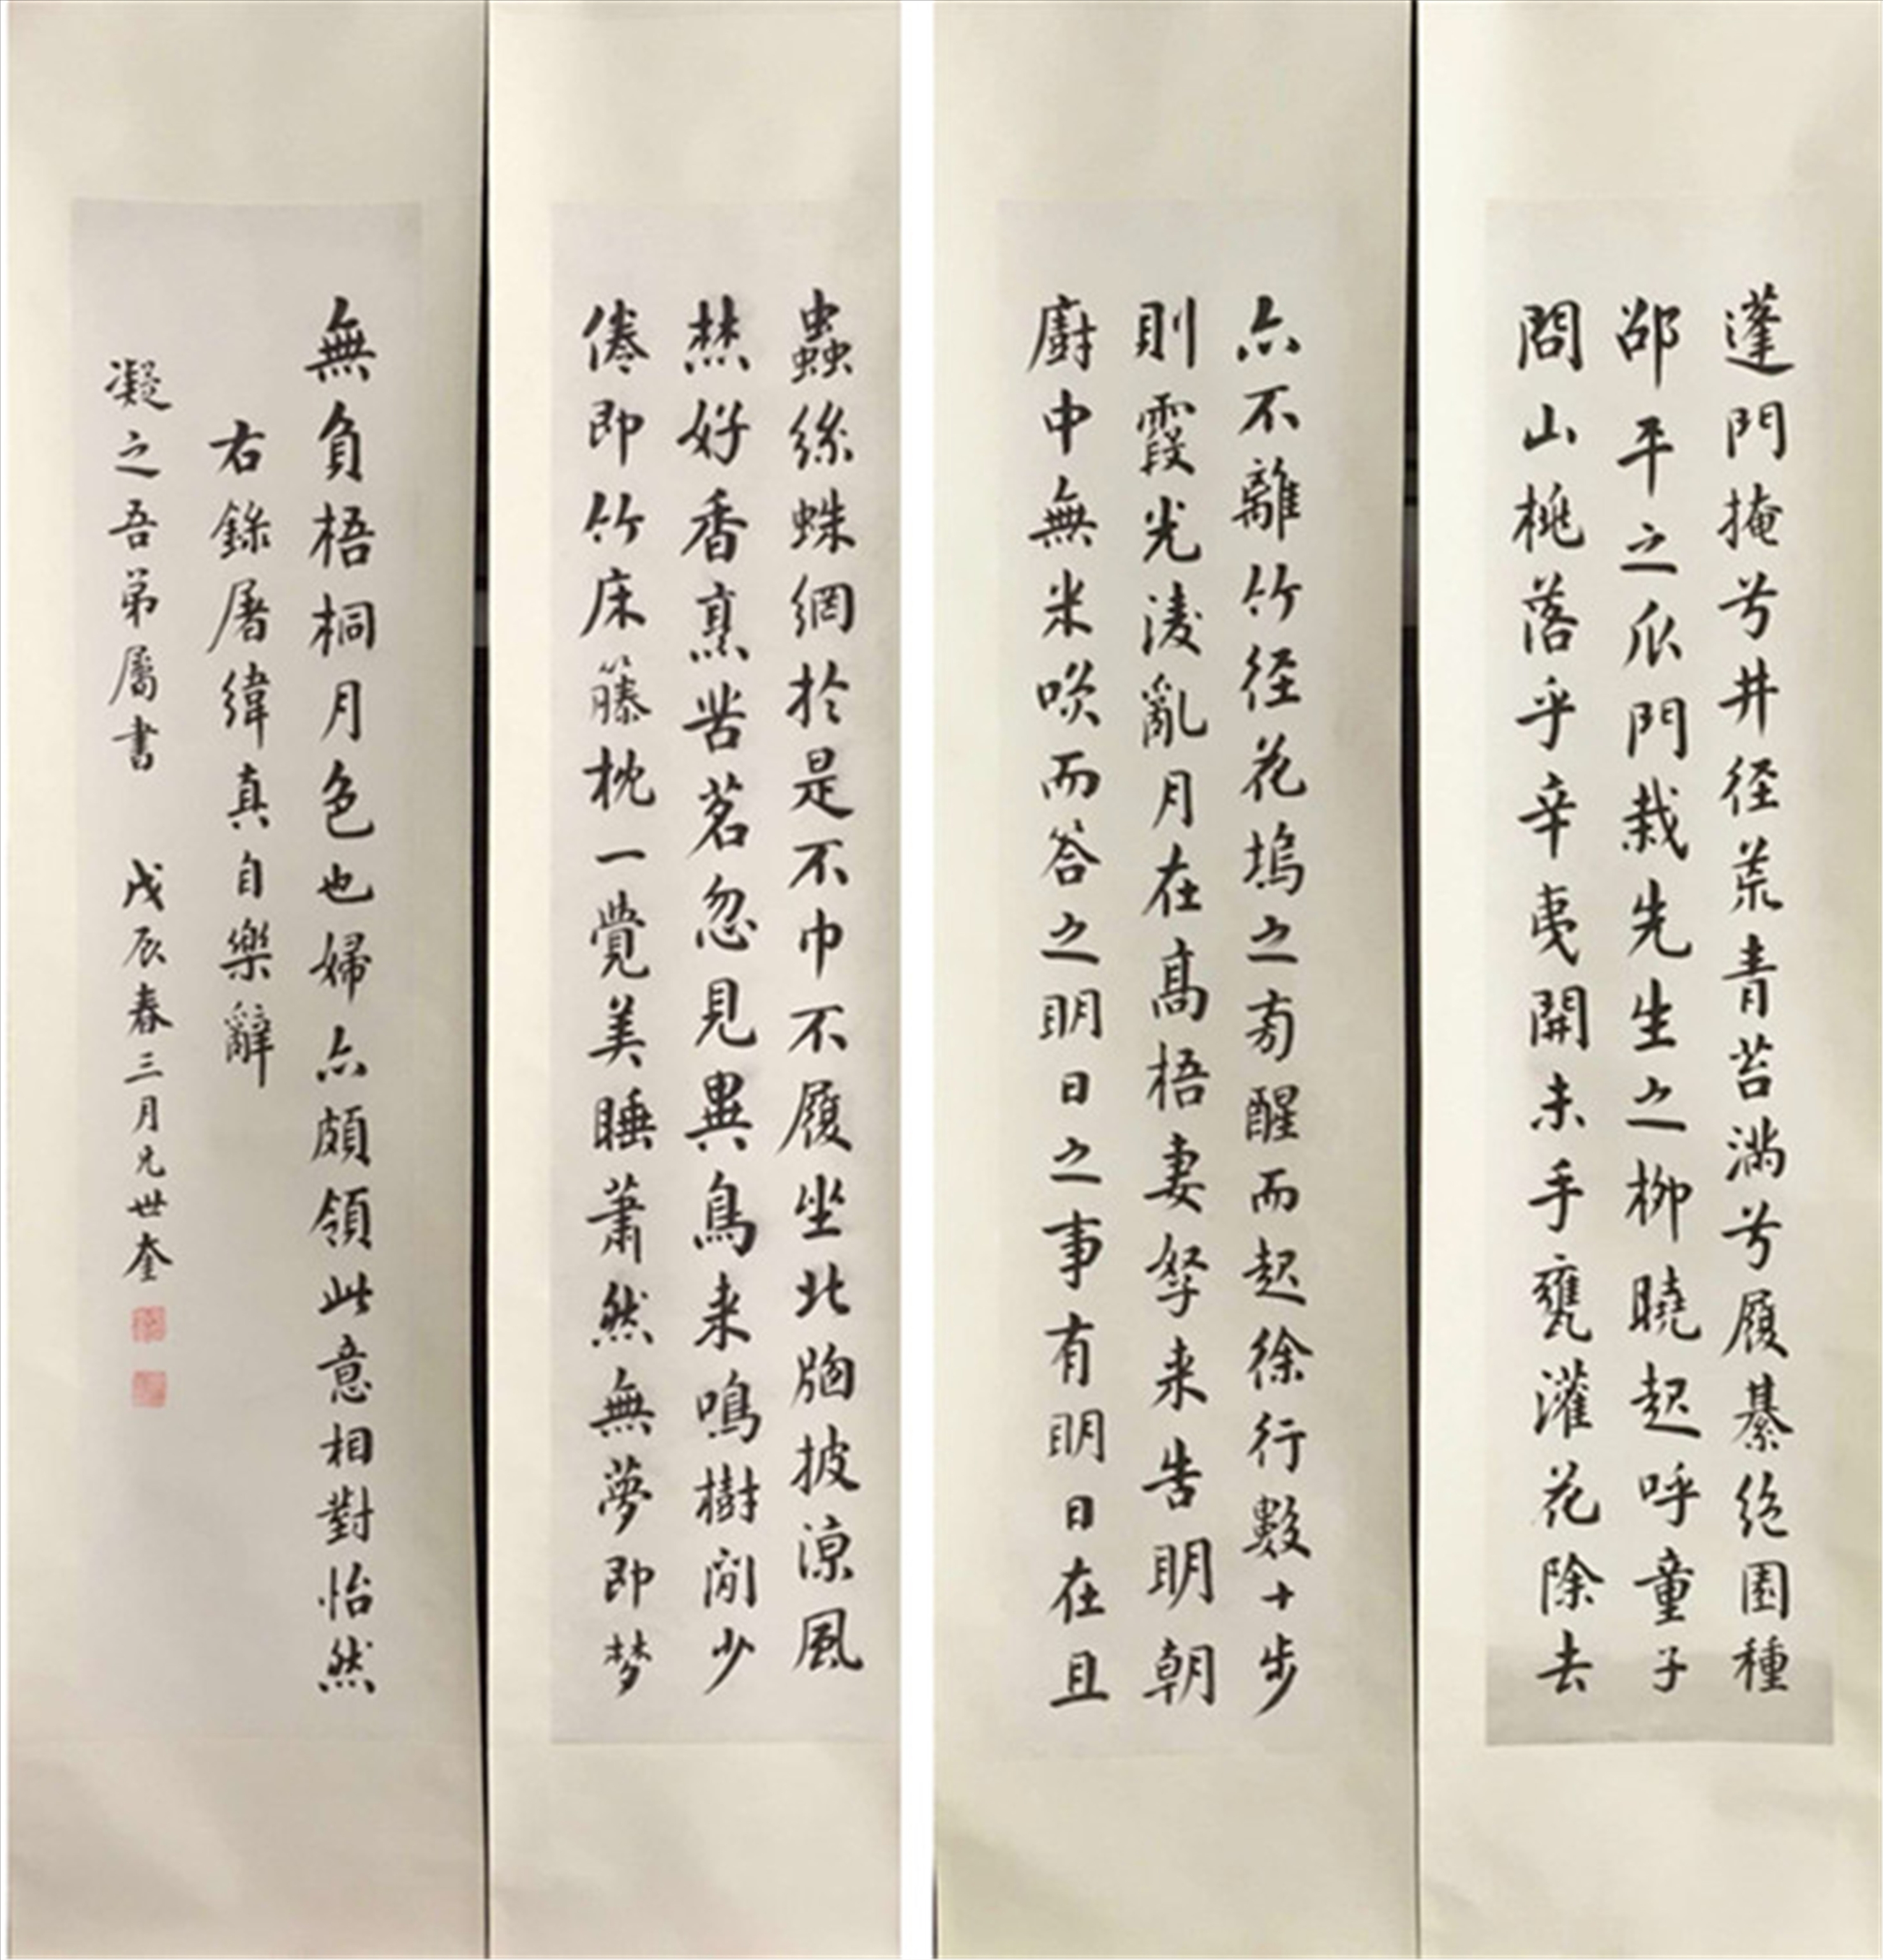 蓬門掩兮井径荒青苔滿兮履綦絶園種
邵平之瓜門栽先生之柳曉起呼童子
問山桃落乎辛夷開未手甕灌花除去
蟲絲蛛網於是不巾不履坐北牕披涼風
焚好香烹苦茗忽見異鳥來鳴樹間少
倦即竹床籐枕一覺美睡蕭然無夢即梦
亦不離竹径花塢之旁醒而起徐行數十步
則霞光淩亂月在高梧妻孥来告明朝
廚中無米笑而答之明日之事有明日在且
無負梧桐月色也婦亦頗領此意相對怡然
右錄屠緯真自樂辭
凝之吾弟屬書 戊辰春三月兄世奎